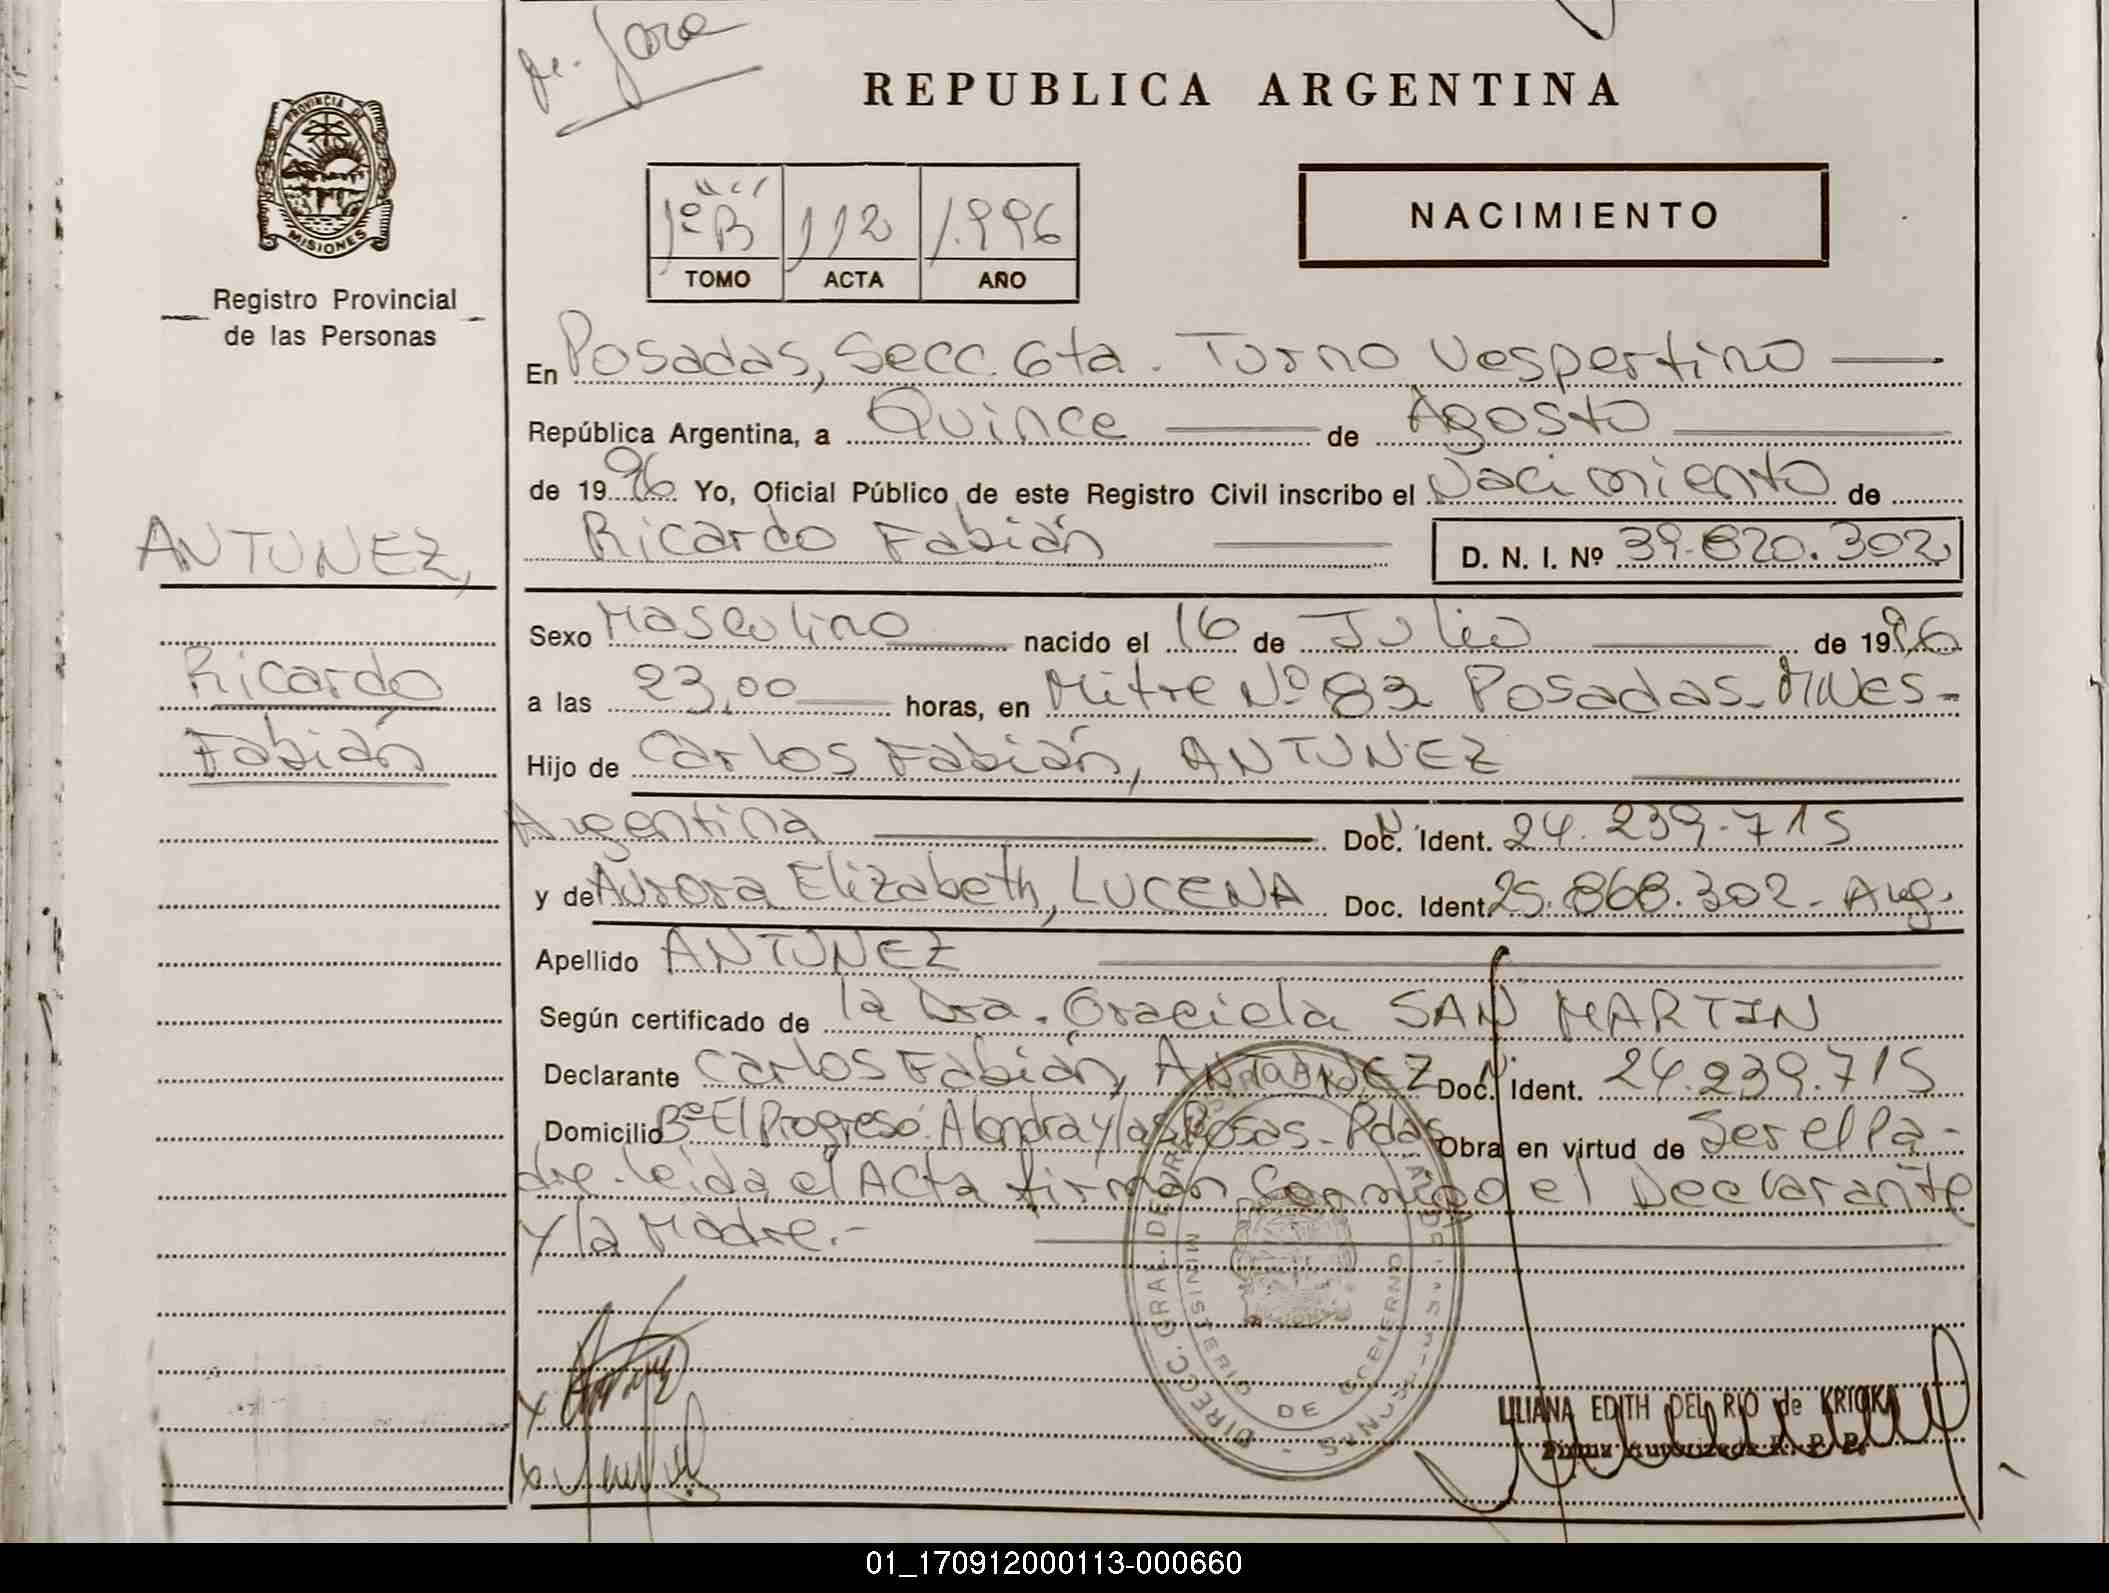 REPUBLICA ARGENTINA
PROVINCIA DE
MISIONES
Registro Provincial
de las Personas
1º "B" 112 1.996
TOMO ACTA AÑO
NACIMIENTO
En Posadas, Secc. 6ta. Turno Vespertino
República Argentina, a Quince de Agosto
de 1996 Yo, Oficial Público de este Registro Civil inscribo el Nacimiento de
Ricardo Fabián D. N. I. Nº 39.820.302
ANTUNEZ,
Ricardo
Fabián
Sexo Masculino nacido el 16 de Julio de 1996
a las 23,00 horas, en Mitre Nº 82 Posadas. Mnes-
Hijo de Carlos Fabián, ANTUNEZ
Argentina Doc. Ident. 24.239.715
y de Aurora Elizabeth, LUCENA Doc. Ident. 25.868.302- Arg.
Apellido ANTUNEZ
Según certificado de la Dra. Graciela SAN MARTIN
Declarante Carlos Fabián, ANTUNEZ Doc. Ident. 24.239.715
Domicilio Bº El Progreso. Alondra y las Rosas- Pdas Obra en virtud de Ser el Pa-
dre. Leida el Acta firman Conmigo el Declarante
y la Madre.-
DIRECC. GRAL. DE
MINISTERIO DE GOBIERNO
LILIANA EDITH DEL RIO de KRIOKA
Firma Autorizada R. P. P.
01_170912000113-000660